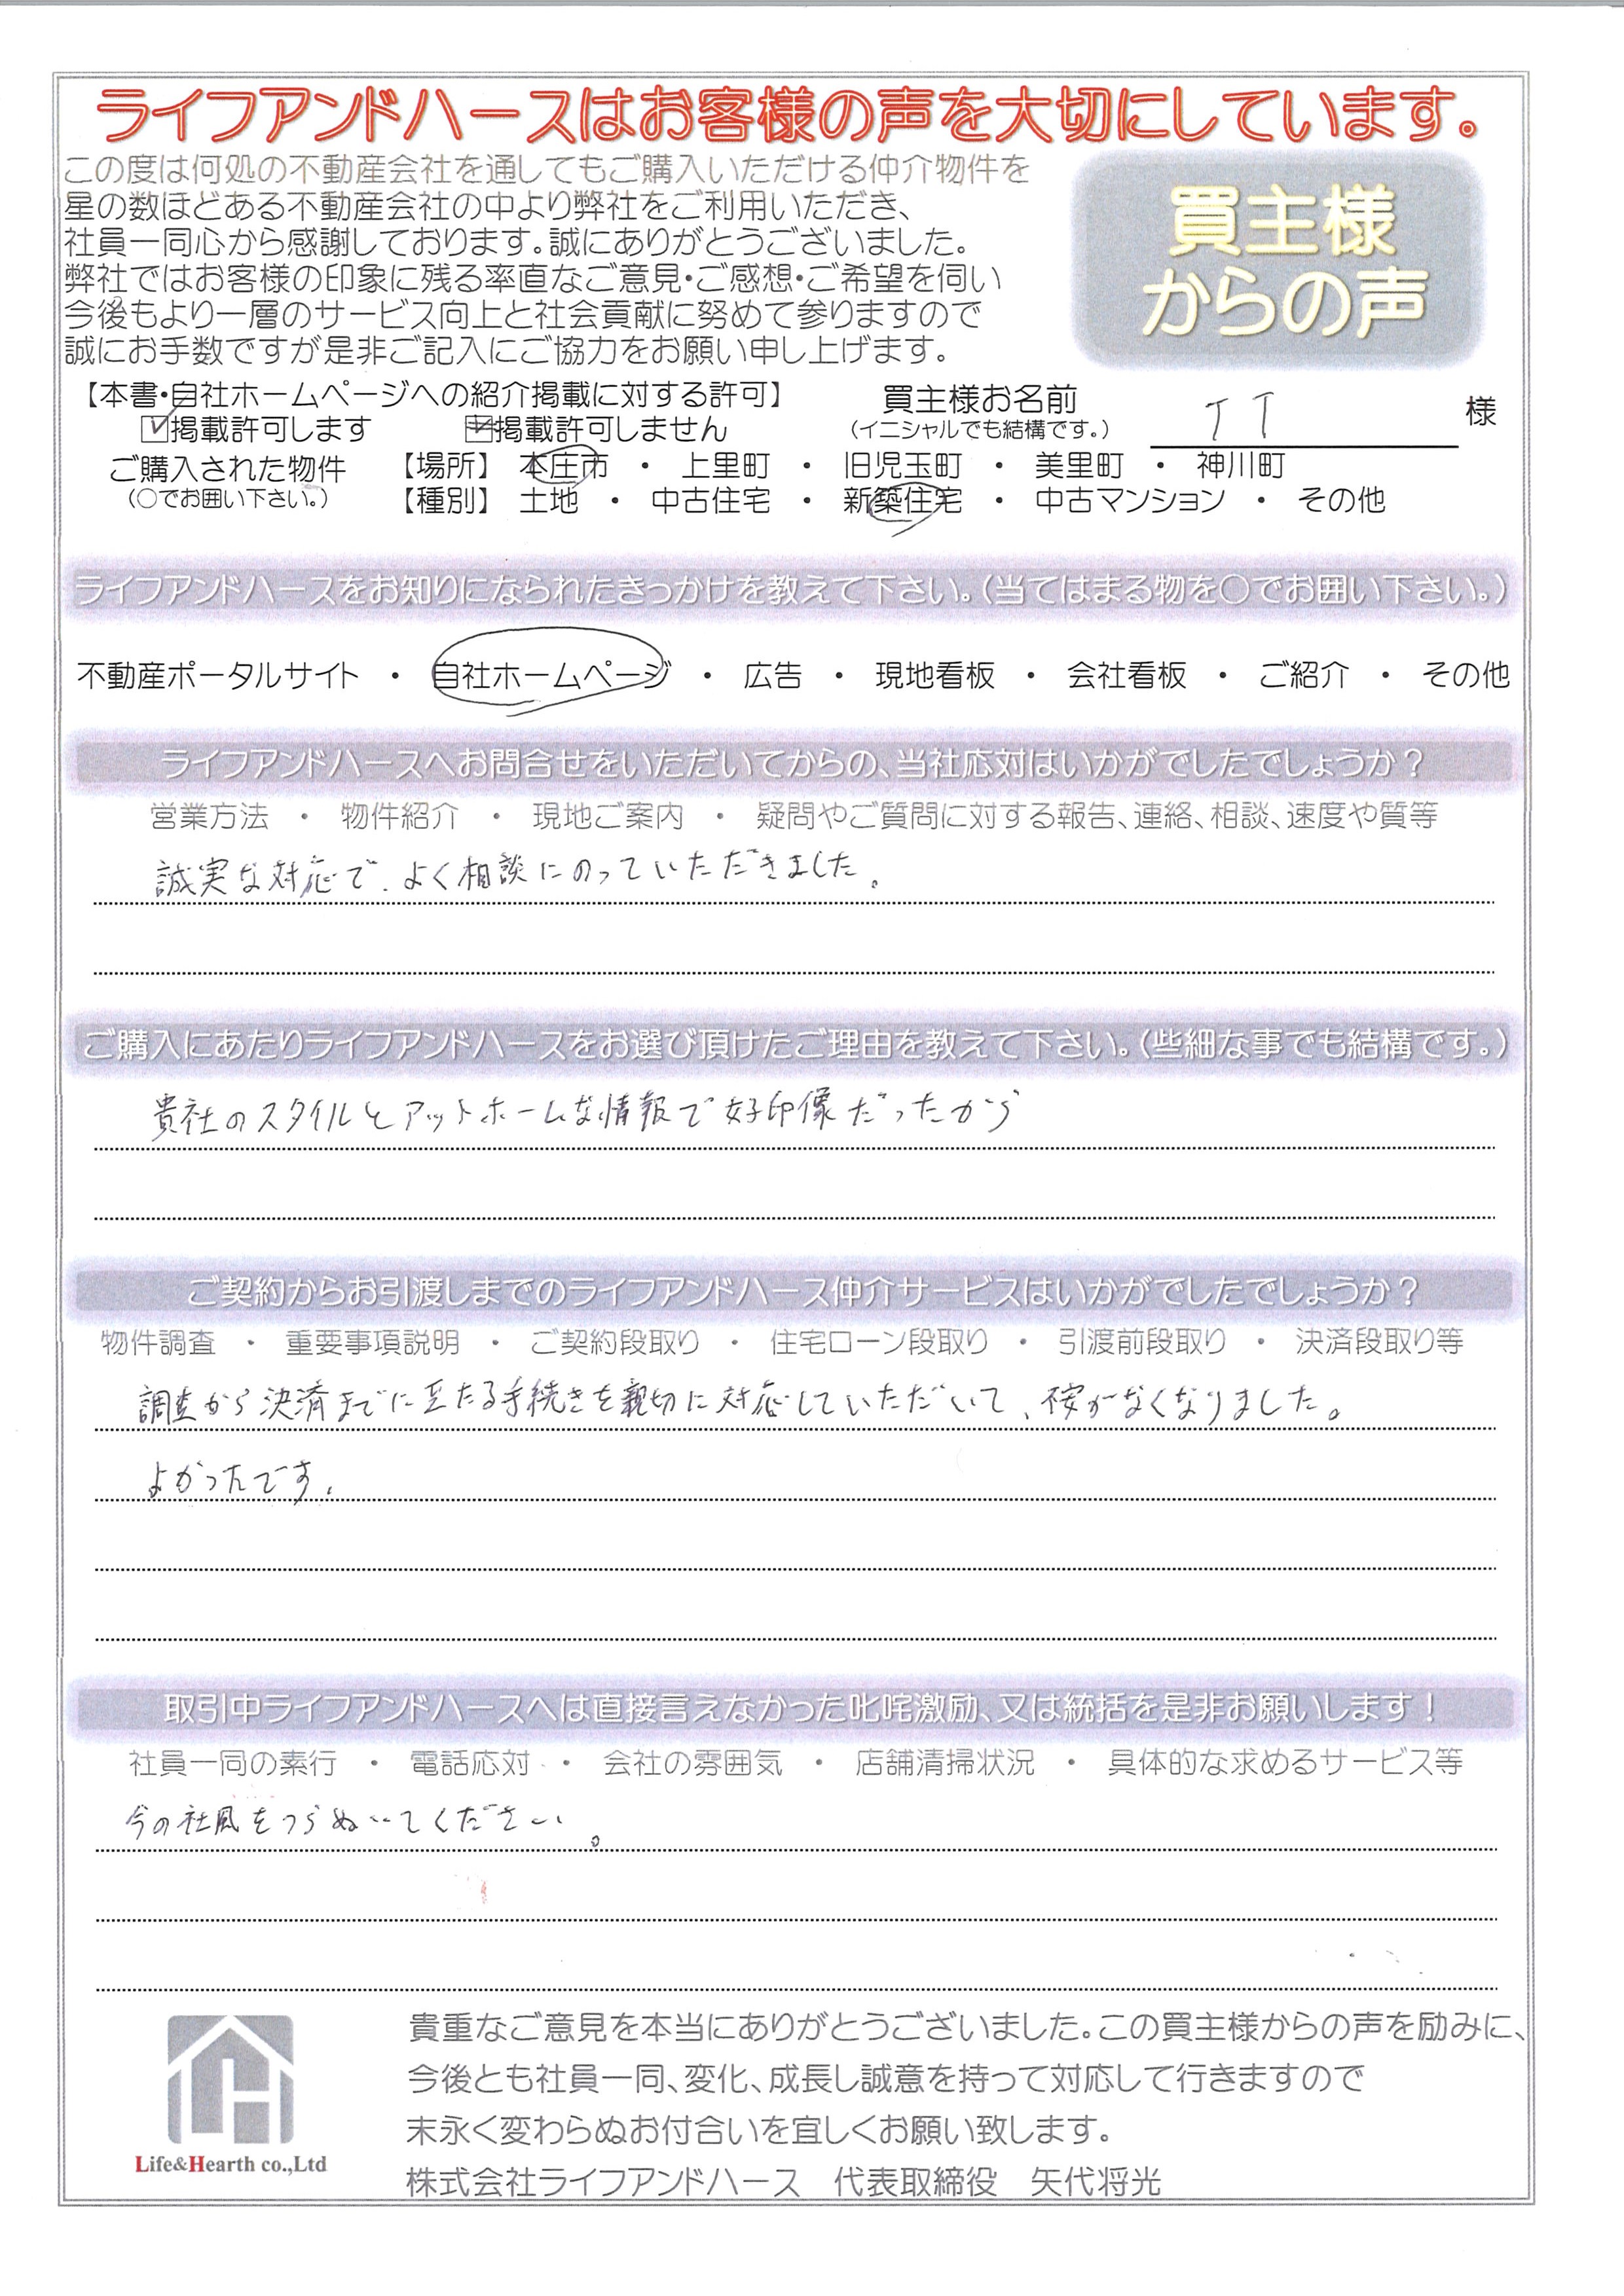 ライフアンドハースはお客様の声を大切にしています。
この度は何処の不動産会社を通してもご購入いただける仲介物件を
星の数ほどある不動産会社の中より弊社をご利用いただき、
社員一同心から感謝しております。誠にありがとうございました。
弊社ではお客様の印象に残る率直なご意見・ご感想・ご希望を伺い
今後もより一層のサービス向上と社会貢献に努めて参りますので
誠にお手数ですが是非ご記入にご協力をお願い申し上げます。
買主様
からの声
【本書・自社ホームページへの紹介掲載に対する許可】
掲載許可します 掲載許可しません
買主様お名前
(イニシャルでも結構です。)
TT 様
ご購入された物件 【場所】 本庄市 ・ 上里町 ・ 旧児玉町 ・ 美里町 ・ 神川町
(○でお囲い下さい。) 【種別】 土地 ・ 中古住宅 ・ 新築住宅 ・ 中古マンション ・ その他
ライフアンドハースをお知りになられたきっかけを教えて下さい。(当てはまる物を○でお囲い下さい。)
不動産ポータルサイト ・ 自社ホームページ ・ 広告 ・ 現地看板 ・ 会社看板 ・ ご紹介 ・ その他
ライフアンドハースへお問合せをいただいてからの、当社応対はいかがでしたでしょうか？
営業方法 ・ 物件紹介 ・ 現地ご案内 ・ 疑問やご質問に対する報告、連絡、相談、速度や質等
誠実な対応で、よく相談にのっていただきました。
ご購入にあたりライフアンドハースをお選び頂けたご理由を教えて下さい。(些細な事でも結構です。)
貴社のスタイルとアットホームな情報で好印像だったから
ご契約からお引渡しまでのライフアンドハース仲介サービスはいかがでしたでしょうか？
物件調査 ・ 重要事項説明 ・ ご契約段取り ・ 住宅ローン段取り ・ 引渡前段取り ・ 決済段取り等
調査から決済までに至たる手続きを親切に対応していただいて、不安がなくなりました。
よかったです。
取引中ライフアンドハースへは直接言えなかった叱咤激励、又は統括を是非お願いします！
社員一同の素行 ・ 電話応対 ・ 会社の雰囲気 ・ 店舗清掃状況 ・ 具体的な求めるサービス等
今の社風をつらぬいてください。
貴重なご意見を本当にありがとうございました。この買主様からの声を励みに、
今後とも社員一同、変化、成長し誠意を持って対応して行きますので
末永く変わらぬお付合いを宜しくお願い致します。
Life&Hearth co.,Ltd
株式会社ライフアンドハース 代表取締役 矢代将光